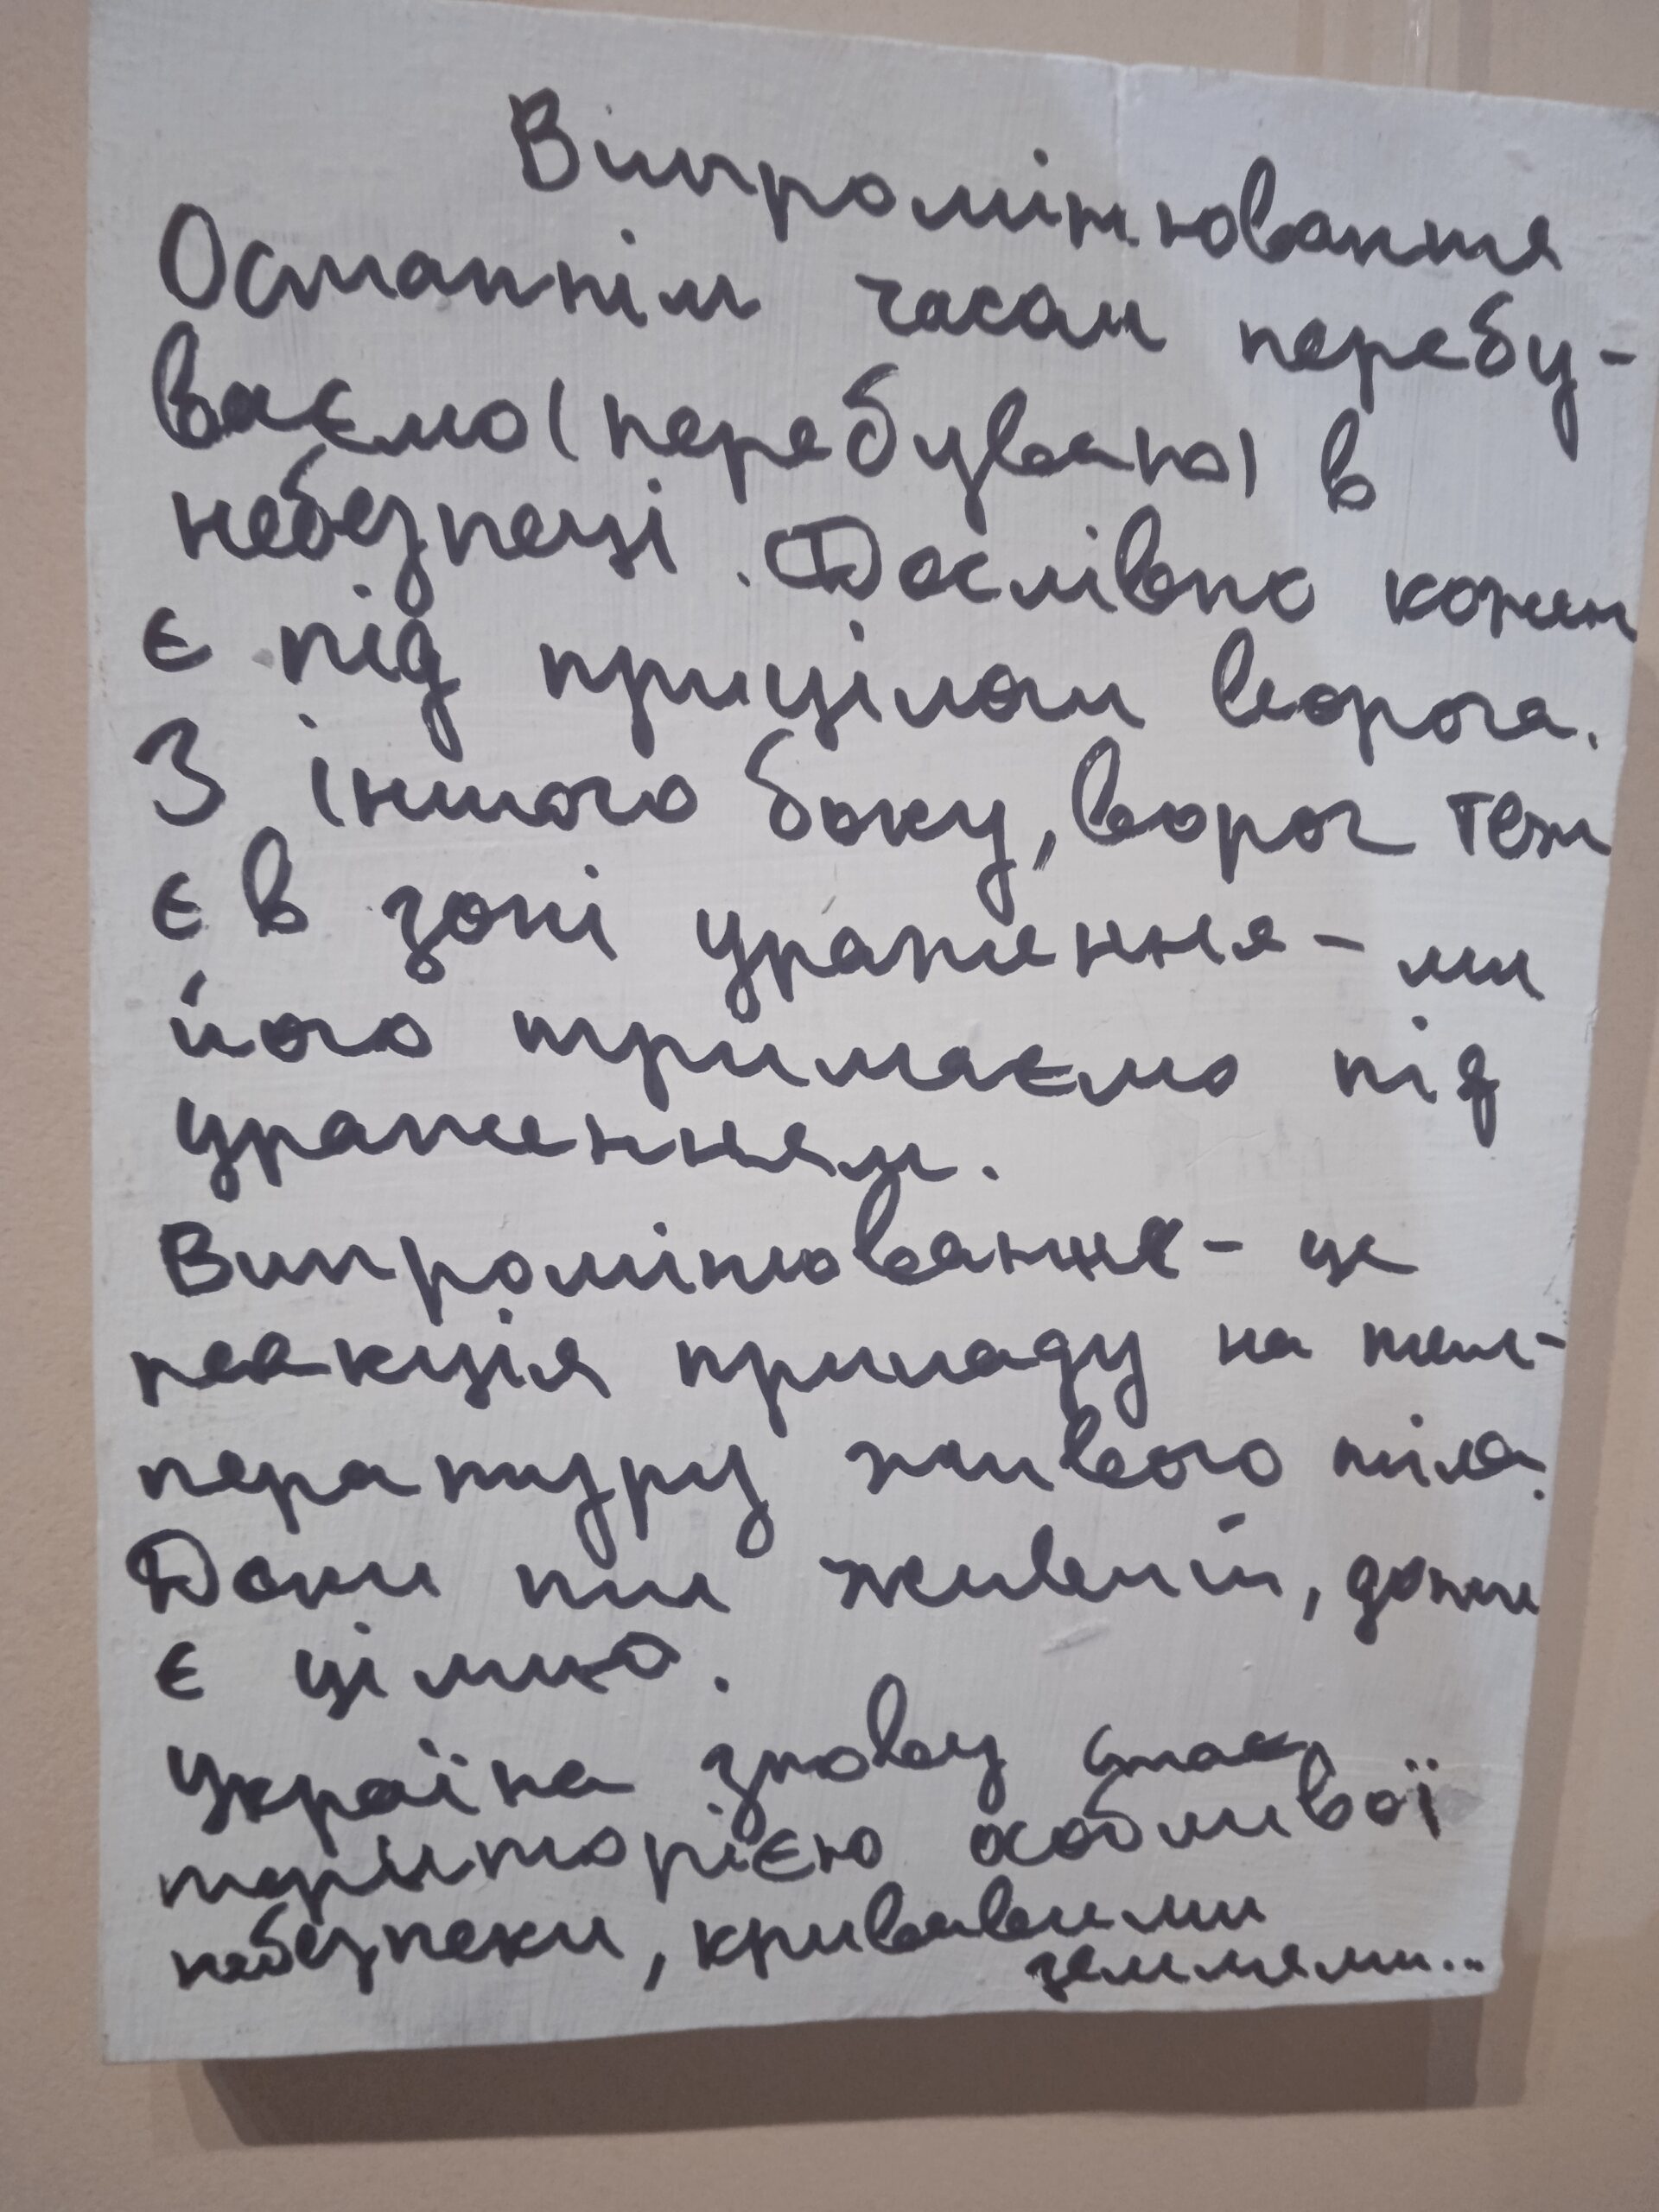 Випромінювання
Останнім часом перебу-
ваємо (перебуваю) в
небезпеці. Дослівно кожен
є під прицілом ворога.
З іншого боку, ворог теж
є в зоні ураження - ми
його тримаємо під
ураженням.
Випромінювання - це
реакція приладу на тем-
пературу живого тіла.
Доки ти живий, доти
є ціллю.
Україна знову стає
територією особливої
небезпеки, кривавими
землями...